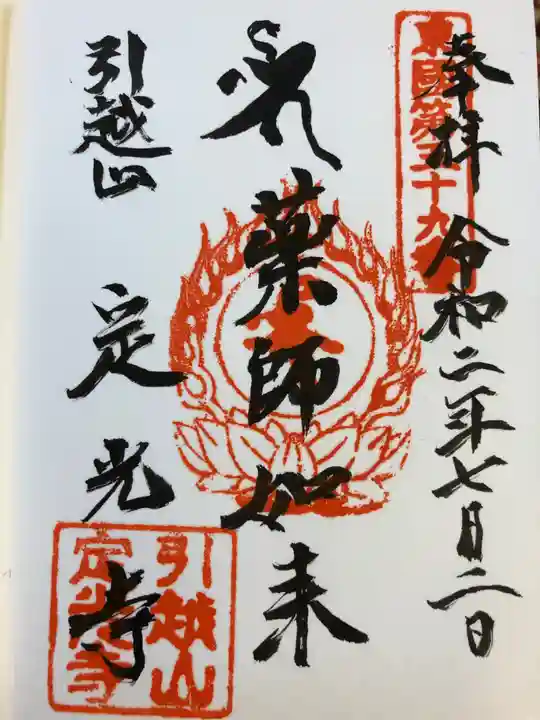 奉拝 令和二年七月二日
東国第五十九番
薬師如来
引越山 定光寺
引越山
定光寺